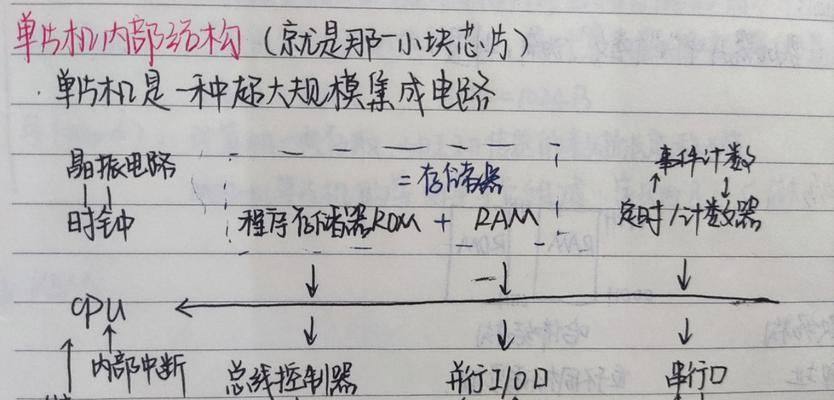 单片机内部结构（就是那一小块芯片）
·单片机是一种超大规模集成电路
晶振电路 =存储器 事件计数
时钟 程序存储器ROM + RAM 定时/计数器
CPU
内部中断 总线控制器 并行I/O口 串行口